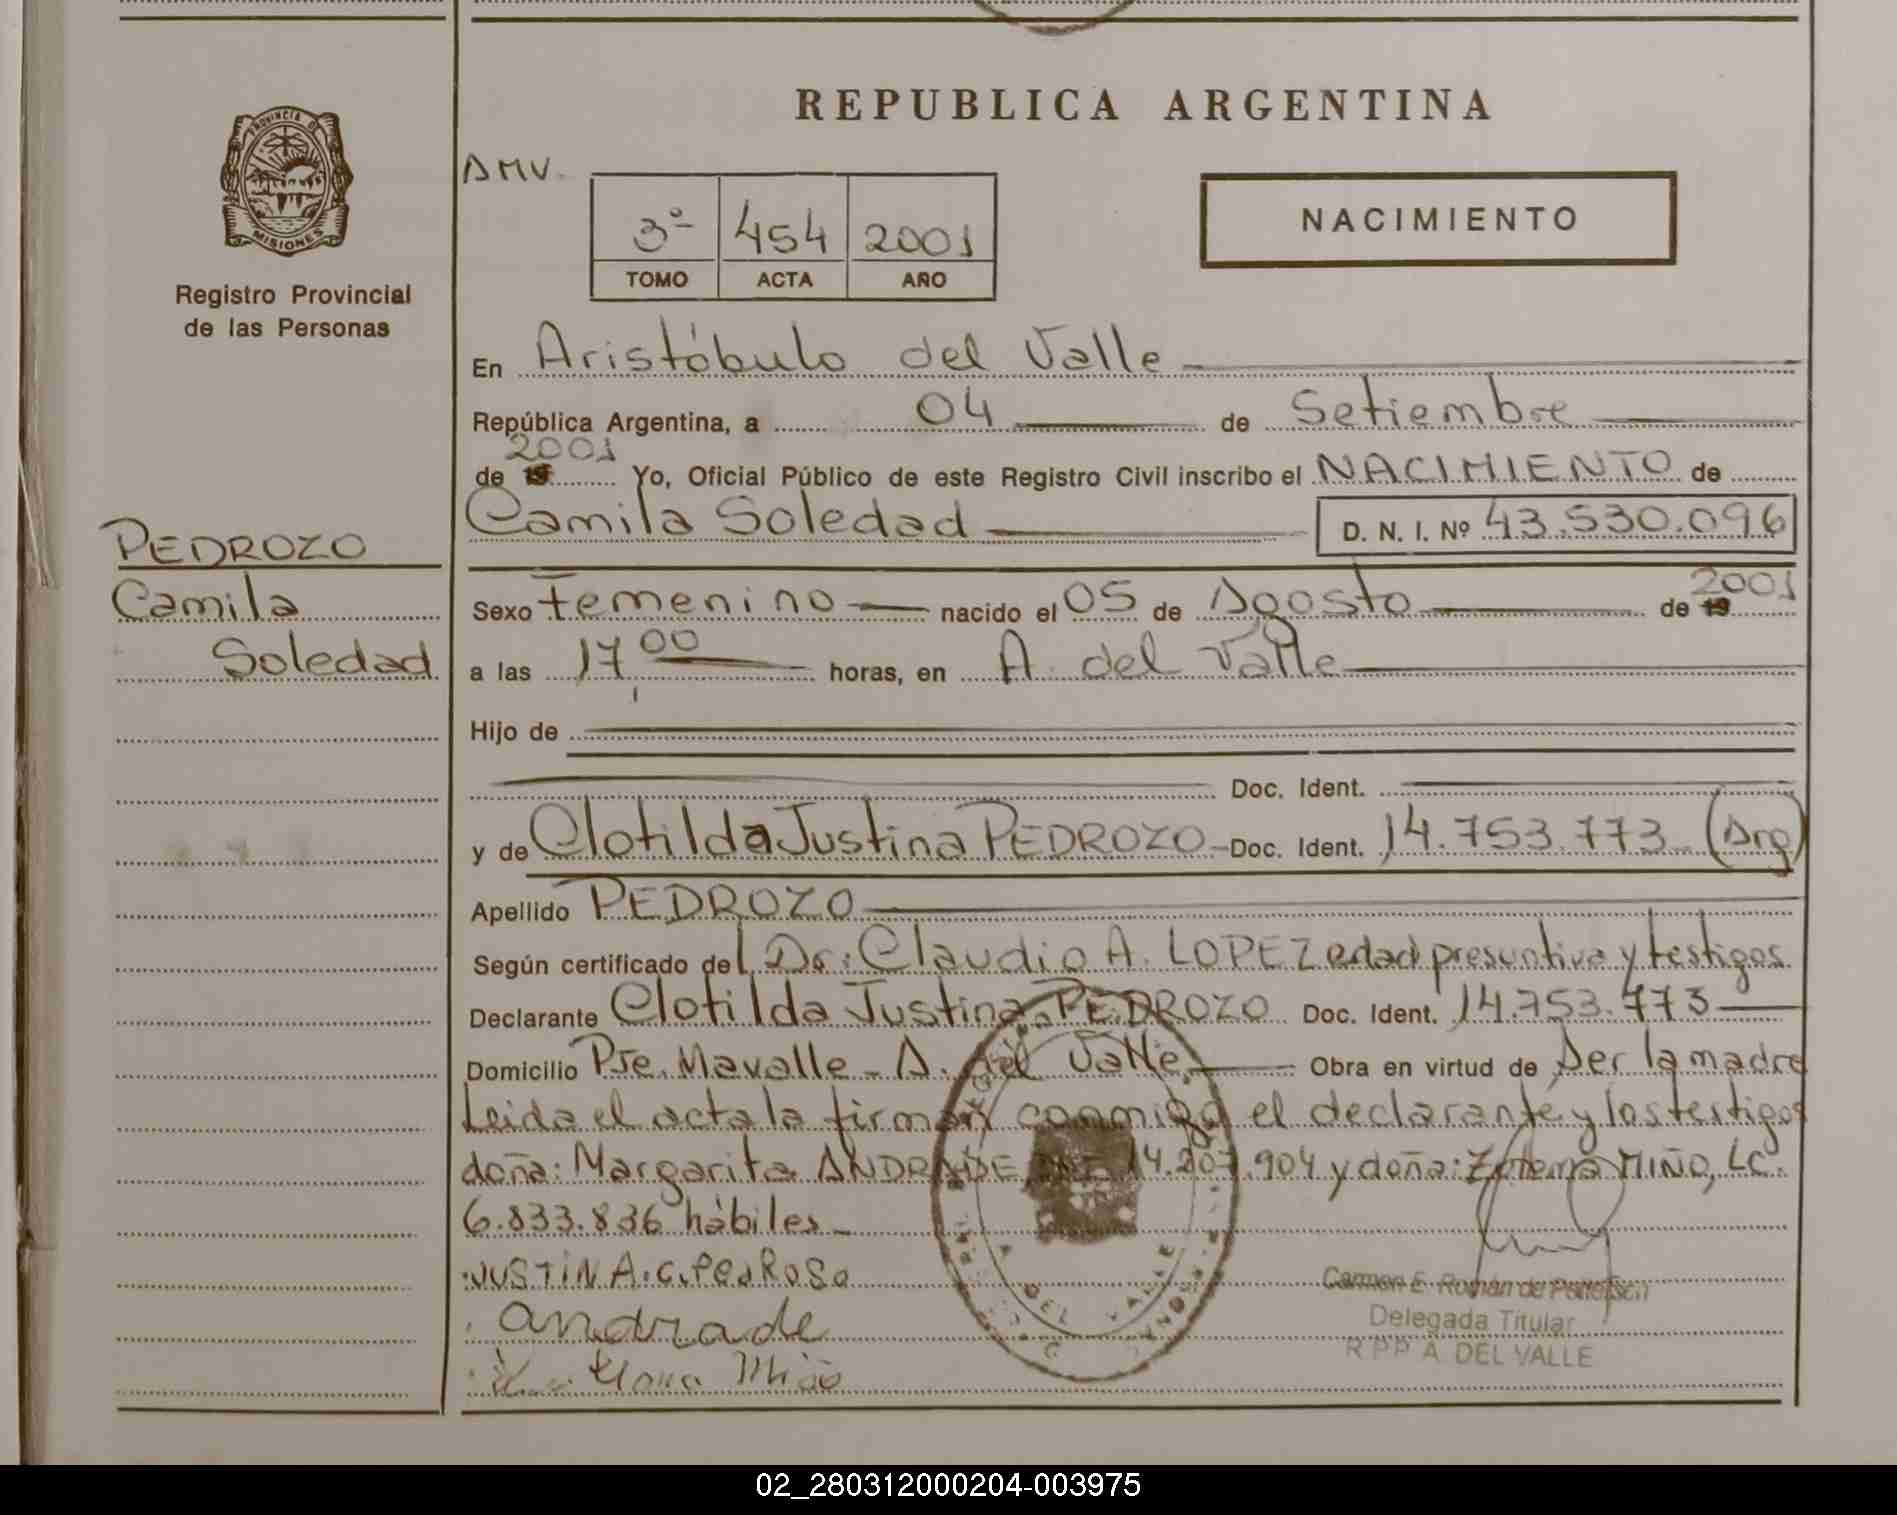 REPUBLICA ARGENTINA
PROVINCIA DE
MISIONES
Registro Provincial
de las Personas
AMV.
3º 454 2001
TOMO ACTA AÑO
NACIMIENTO
En Aristóbulo del Valle
República Argentina, a 04 de Setiembre
de 19 2001 Yo, Oficial Público de este Registro Civil inscribo el NACIMIENTO de
Camila Soledad D. N. I. Nº 43.530.096
PEDROZO
Camila
Soledad
Sexo Femenino nacido el 05 de Agosto de 19 2001
a las 17,00 horas, en A. del Valle
Hijo de
Doc. Ident.
y de Clotilda Justina PEDROZO Doc. Ident. 14.753.773 (Arg)
Apellido PEDROZO
Según certificado del Dr: Claudio A. LOPEZ edad presuntiva y testigos
Declarante Clotilda Justina PEDROZO Doc. Ident. 14.753.773
Domicilio Pje. Mavalle - A. del Valle Obra en virtud de Ser la madre
Leida el acta la firman conmigo el declarante y los testigos
doña: Margarita ANDRADE, 14.207.904 y doña: Zulema MIÑO, LC.
6.833.836 hábiles
JUSTINA.C.PedRoso
andrade
Miño
A. DEL VALLE
Carmen E. Román de
Delegada Titular
R P P A. DEL VALLE
02_280312000204-003975